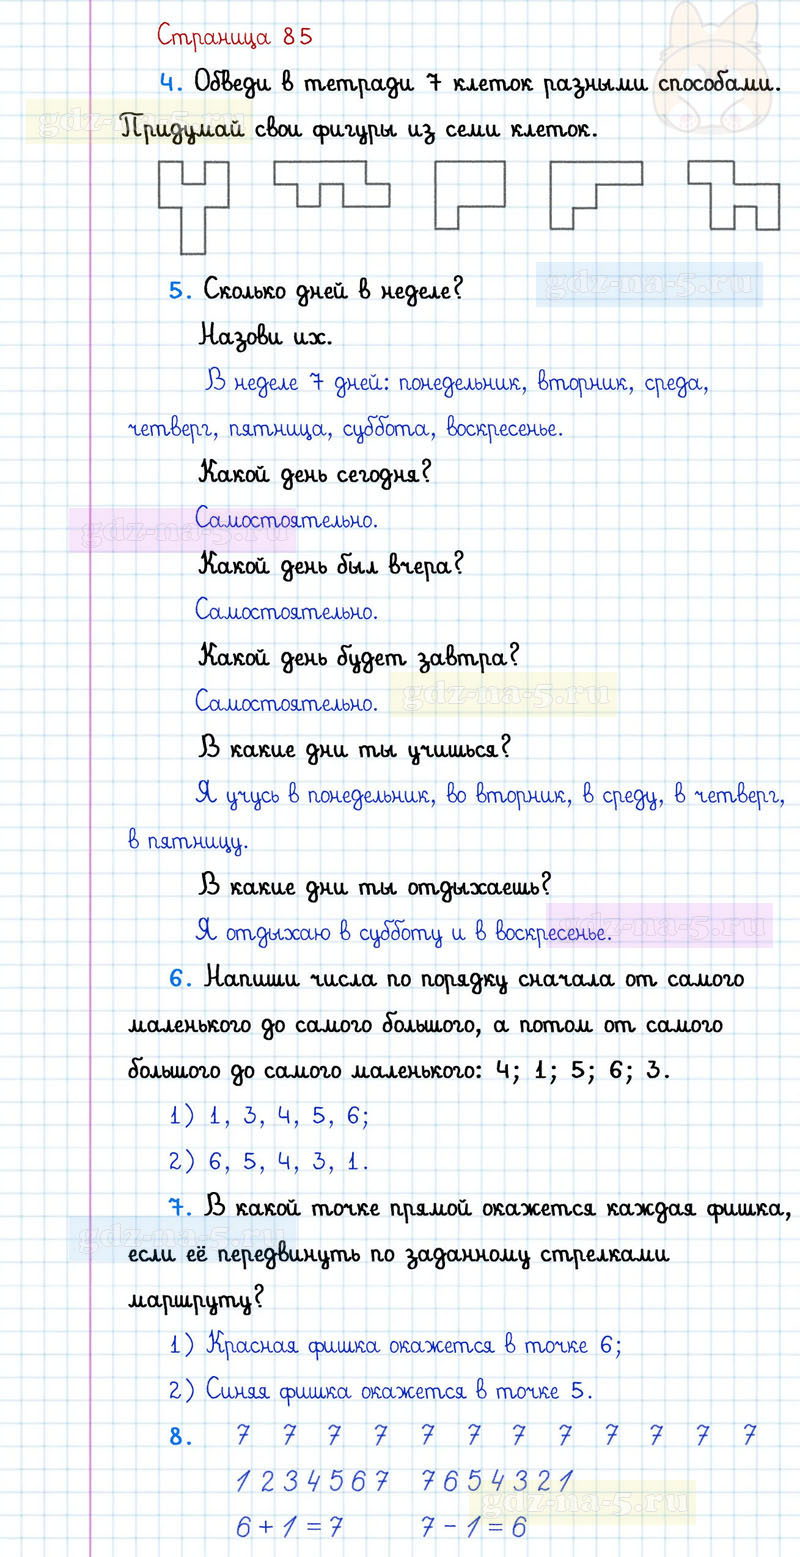 Страница 85
4. Обведи в тетради 7 клеток разными способами.
gdz-na-5.ru
Придумай свои фигуры из семи клеток.
gdz-na-5.ru
5. Сколько дней в неделе?
Назови их.
В неделе 7 дней: понедельник, вторник, среда,
четверг, пятница, суббота, воскресенье.
Какой день сегодня?
Самостоятельно.
gdz-na-5.ru
Какой день был вчера?
Самостоятельно.
Какой день будет завтра?
Самостоятельно.
gdz-na-5.ru
В какие дни ты учишься?
Я учусь в понедельник, во вторник, в среду, в четверг,
в пятницу.
В какие дни ты отдыхаешь?
Я отдыхаю в субботу и в воскресенье.
gdz-na-5.ru
6. Напиши числа по порядку сначала от самого
маленького до самого большого, а потом от самого
большого до самого маленького: 4; 1; 5; 6; 3.
1) 1, 3, 4, 5, 6;
2) 6, 5, 4, 3, 1.
7. В какой точке прямой окажется каждая фишка,
gdz-na-5.ru
если её передвинуть по заданному стрелками
маршруту?
1) Красная фишка окажется в точке 6;
2) Синяя фишка окажется в точке 5.
8. 7 7 7 7 7 7 7 7 7 7 7 7
1 2 3 4 5 6 7 7 6 5 4 3 2 1
gdz-na-5.ru
6 + 1 = 7 7 - 1 = 6